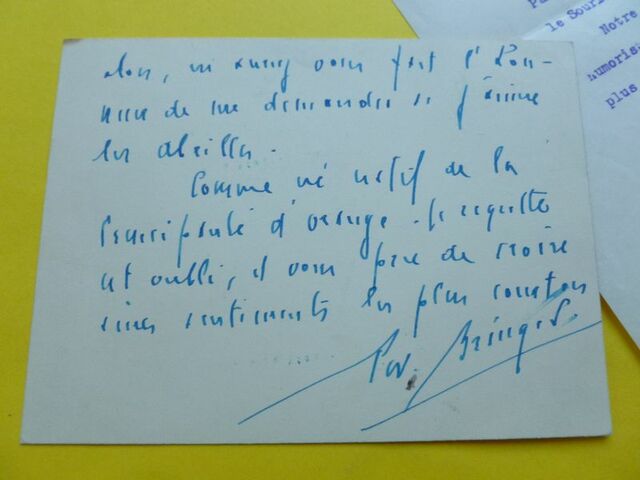 alors, ni auriez vous fait l'hon-
neur de me demander si j'aime
les abeilles.
Comme né natif de la
Principauté d'Orange. Je regrette
cet oubli, et vous prie de croire
à mes sentiments les plus courtois
Rod. Bringer.
Pa
le Souri
Notre
humoris
plus